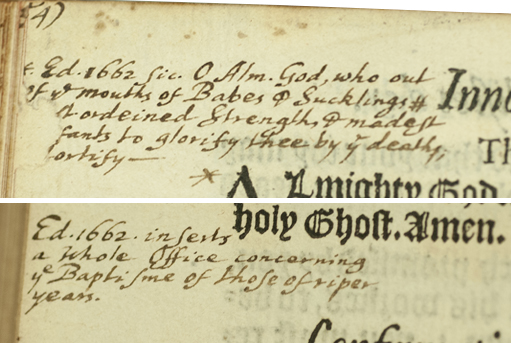 54)
* Ed. 1662 sic. O Alm. God, who out
of yᵉ mouths of Babes & Sucklings #
# ordeined Strength, & madest
fants to glorify thee by yʳ deaths,
ortify—
Inno
Th
*
Almighty God,
holy Ghost. Amen.
Ed. 1662. inserts
a Whole Office concerning
yᵉ Baptisme of those of riper
years.